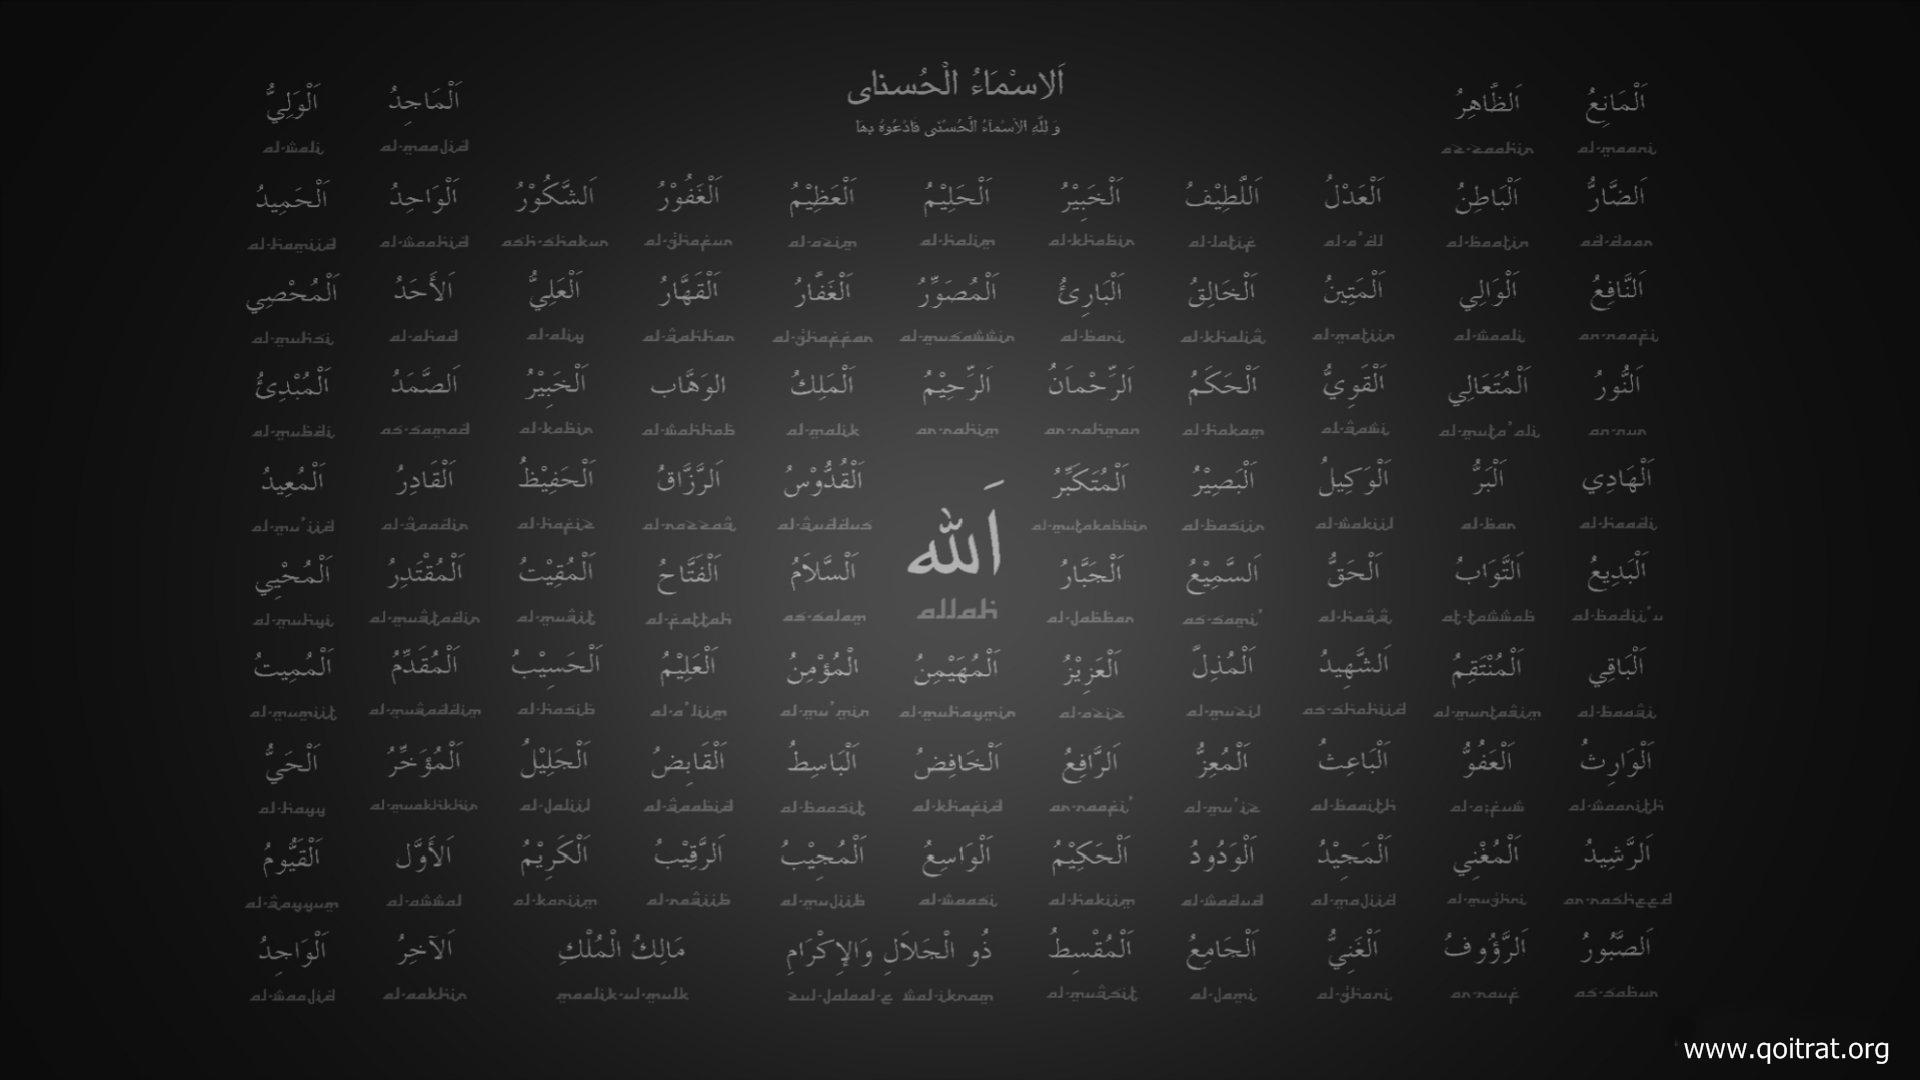 اَلاِسْمَاءُ الْحُسنای
وَ لِلّٰهِ الاَسْمَآءُ الْحُسْنَى فَادْعُوهُ بِهَا
اَلْمَانِعُ اَلظَّاهِرُ اَلْمَاجِدُ اَلْوَلِيُّ
al-wali al-maajid az-zaahir al-maani
اَلضَّارُّ اَلْبَاطِنُ اَلْعَدْلُ اَللَّطِيْفُ اَلْخَبِيْرُ اَلْحَلِيْمُ اَلْعَظِيْمُ اَلْغَفُوْرُ اَلشَّكُوْرُ اَلْوَاحِدُ اَلْحَمِيدُ
al-hamiid al-waahid ash-shakur al-ghafur al-azim al-halim al-khabir al-latif al-a'dl al-baatin ad-daar
اَلنَّافِعُ اَلْوَالِي اَلْمَتِينُ اَلْخَالِقُ اَلْبَارِئُ اَلْمُصَوِّرُ اَلْغَفَّارُ اَلْقَهَّارُ اَلْعَلِيُّ اَلأَحَدُ اَلْمُحْصِي
al-muhsi al-ahad al-aliy al-qahhar al-ghaffar al-musawwir al-bari al-khaliq al-matiin al-waali an-naafi
اَلنُّورُ اَلْمُتَعَالِي اَلْقَوِيُّ اَلْحَكَمُ اَلرِّحْمـَانُ اَلرِّحِيْمُ اَلْمَلِكُ الوَهَّاب اَلْخَبِيْرُ اَلصَّمَدُ اَلْمُبْدِئُ
al-mubdi as-samad al-kabir al-wahhab al-malik ar-rahim ar-rahman al-hakam al-qawi al-muta'ali an-nur
اَلْهَادِي اَلْبَرُّ اَلْوَكِيلُ اَلْبَصِيْرُ اَلْمُتَكَبِّرُ اَلْقُدُّوْسُ اَلرَّزَّاقُ اَلْحَفِيْظُ اَلْقَادِرُ اَلْمُعِيدُ
al-mu'iid al-qaadir al-hafiz al-razzaq al-quddus al-mutakabbir al-basiir al-wakiil al-bar al-haadi
اَلله
allah
اَلْبَدِيعُ اَلتَّوَابُ اَلْحَقُّ اَلسَّمِيْعُ اَلْجَبَّارُ اَلْسَّلاَمُ اَلْفَتَّاحُ اَلْمُقِيْتُ اَلْمُقْتَدِرُ اَلْمُحْيِي
al-muhyi al-muqtadir al-muqit al-fattah as-salam al-jabbar as-sami' al-haqq at-tawwab al-badii'u
اَلْبَاقِي اَلْمُنْتَقِمُ اَلشَّهِيدُ اَلْمُذِلَّ اَلْعَزِيْزُ اَلْمُهَيْمِنُ الْمُؤْمِنُ اَلْعَلِيْمُ اَلْحَسِيْبُ اَلْمُقَدِّمُ اَلْمُمِيتُ
al-mumiit al-muqaddim al-hasib al-a'liim al-mu'min al-muhaymin al-aziz al-muzil as-shahiid al-muntaqim al-baaqi
اَلْوَارِثُ اَلْعَفُوُّ اَلْبَاعِثُ اَلْمُعِزُّ اَلرَّافِعُ اَلْخَافِضُ اَلْبَاسِطُ اَلْقَابِضُ اَلْجَلِيْلُ اَلْمُؤَخِّرُ اَلْحَيُّ
al-hayy al-muakhkhir al-jaliil al-qaabid al-baasit al-khafid ar-raafi' al-mu'iz al-baaith al-a;fuw al-waarith
اَلرَّشِيدُ اَلْمُغْنِي اَلْمَجِيْدُ اَلْوَدُودُ اَلْحَكِيْمُ اَلْوَاسِعُ اَلْمُجِيْبُ اَلرَّقِيْبُ اَلْكَرِيْمُ اَلأَوَّل اَلْقَيُّومُ
al-qayyum al-awwal al-kariim al-raqiib al-mujiib al-waasi al-hakiim al-wadud al-majiid al-mughni ar-rasheed
اَلصَّبُورُ اَلرَّؤُوفُ اَلْغَنِيُّ اَلْجَامِعُ اَلْمُقْسِطُ ذُو الْجَلاَلِ وَالإِكْرَامِ مَالِكُ الْمُلْكِ اَلآخِرُ اَلْوَاجِدُ
al-waajid al-aakhir maalik-ul-mulk zul-jalaal-e wal-ikram al-muqsit al-jami al-ghani ar-rauf as-sabur
www.qoitrat.org